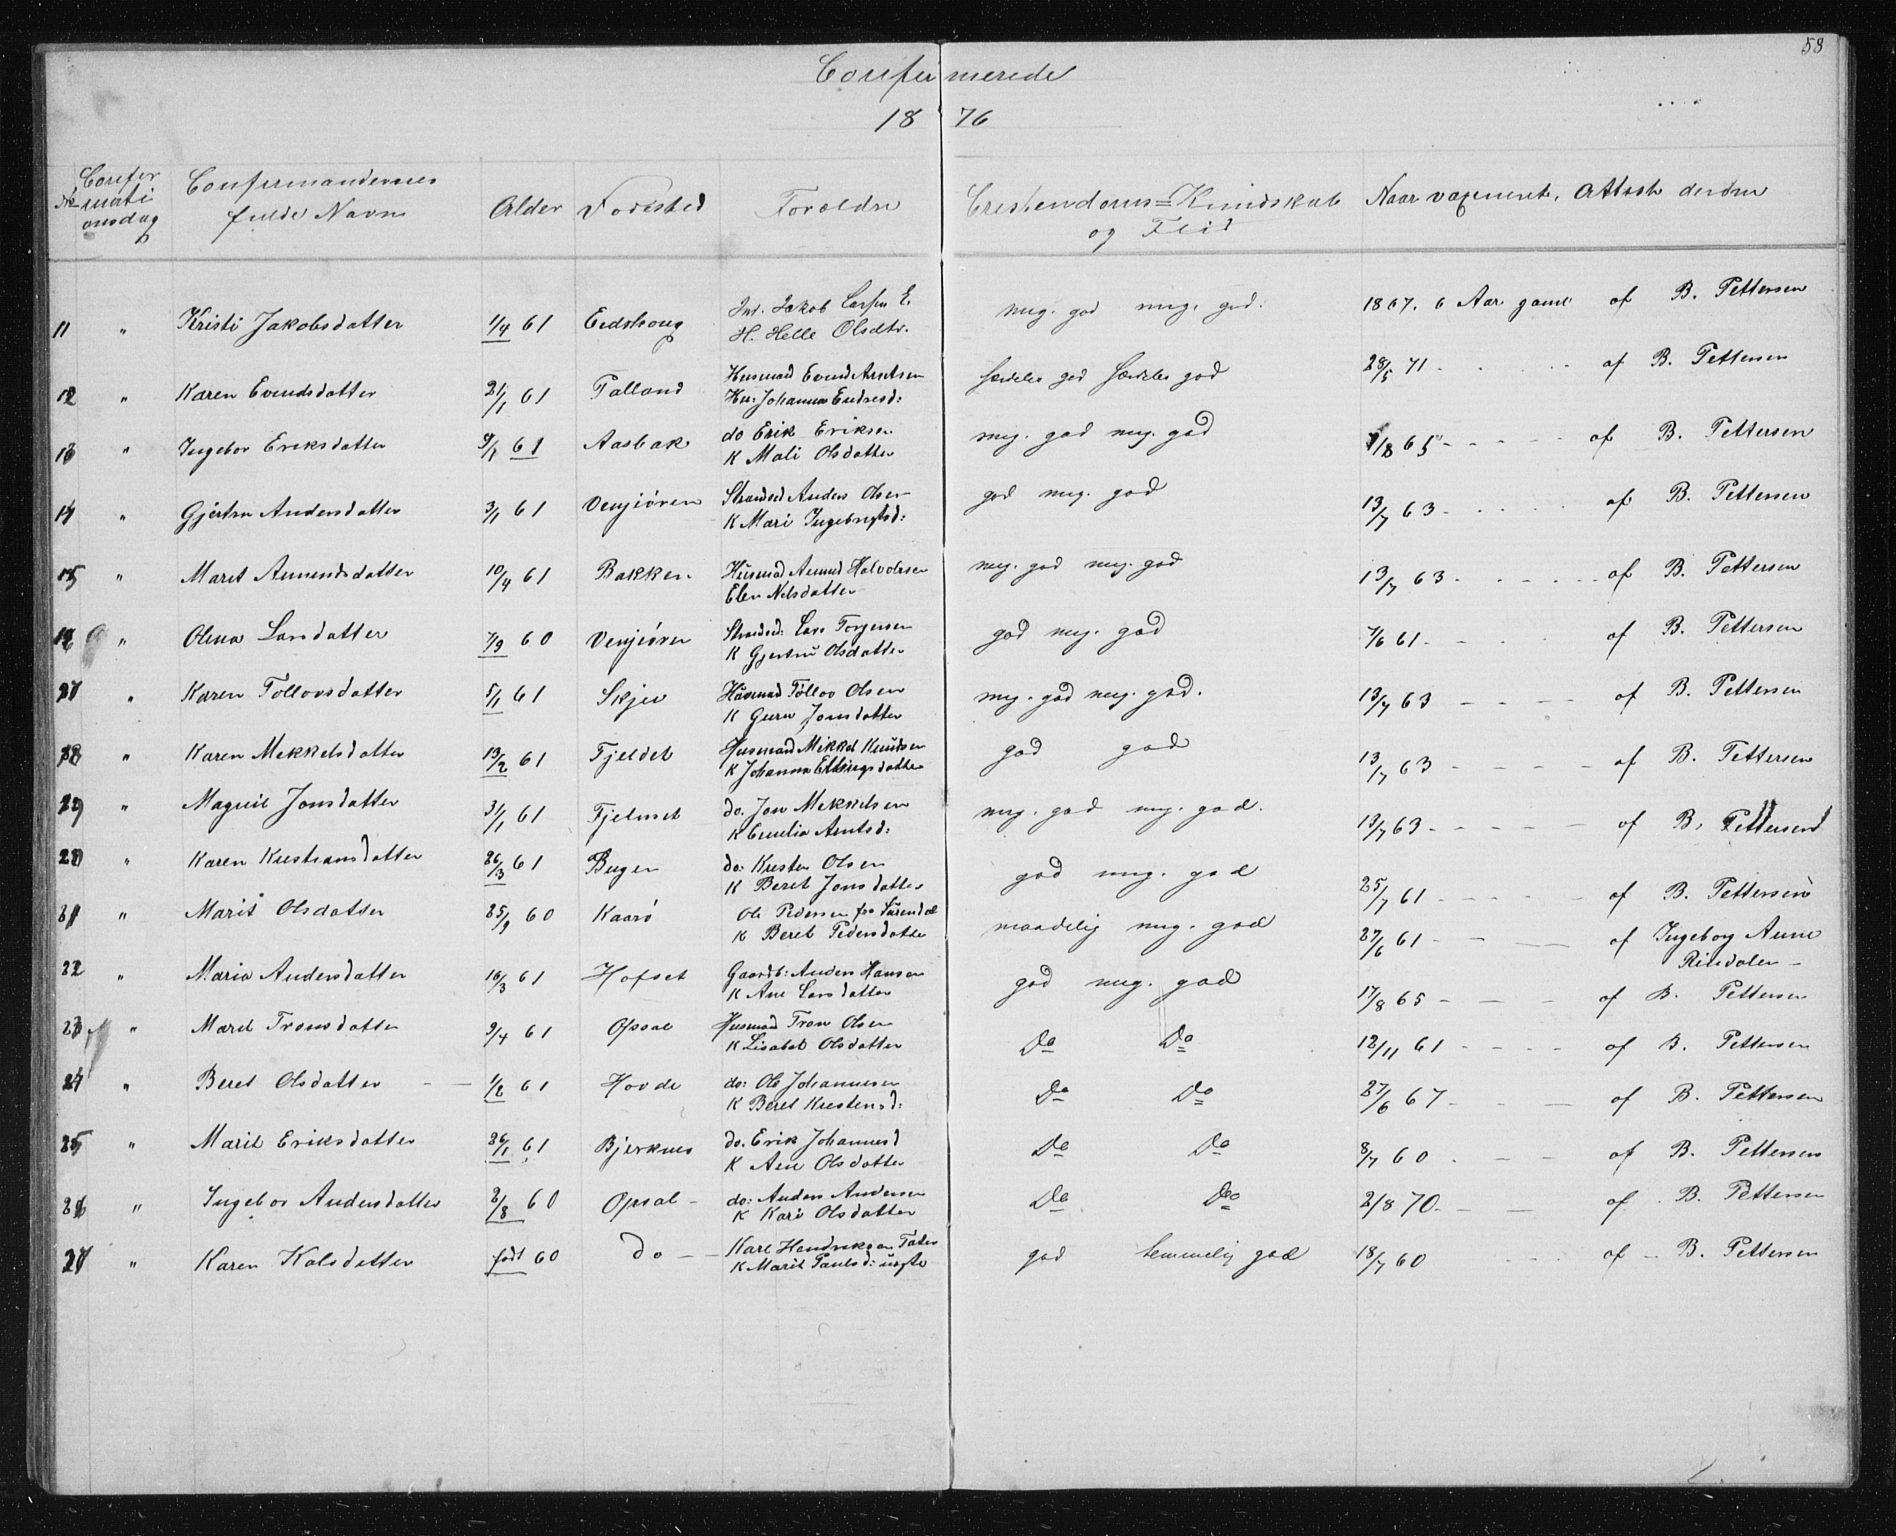 58
Confirmerede
1876
No Confirmationsdag Confirmandernes fulde Navn Alder Fødested Forældre Christendoms=Kundskab og Flid Naar vaxineret, Attest derom
11 " Kristi Jakobsdatter 1/4 61 Eidshoug Ind. Jakob Larsen E. H. Helle Olsdtr. mug. god mug. god. 1867. 6 Aar gaml af B. Pettersen
12 " Karen Evendsdatter 21/1 61 Talland Husmad Evend Arntsen Hu: Johanna Endresd: særdeles god særdeles god 28/5 71 af B. Pettersen
13 " Ingebor Eriksdatter 9/1 61 Aasbak do Erik Eriksen K Mali Olsdatter mug. god mug. god 1/8 65 - - - - af B. Pettersen
14 " Gjertru Andersdatter 3/1 61 Venjiøren Strandsd Anders Olsen K Mari Ingebrigtsd: god mug. god 13/7 63 - - - - af B. Pettersen
15 " Marit Amundsdatter 10/4 61 Bakken Husmad Amund Halvorsen Elen Nilsdatter mug. god mug. god 13/7 63 - - - - af B. Pettersen
16 " Olena Larsdatter 7/9 60 Venjiøren Strandsd: Lars Torgersen K Gjertru Olsdatter god mug. god 7/6 61 - - - af B. Pettersen
17 " Karen Tollovsdatter 5/1 61 Skjei Husmad Tollov Olsen K Guru Jonsdatter mug. god mug. god. 13/7 63 - - - - af B. Pettersen
18 " Karen Mekkelsdatter 13/2 61 Fjeldet Husmand Mikkel Knudsen K Johanna Ellingsdatter god god 13/7 63 - - - - af B. Pettersen
19 " Magnil Jonsdatter 31/1 61 Fjelnset do. Jon Mekkelsen K Emelia Arntsd: mug. god mug. god. 13/7 63 - - - - af B. Pettersen
20 " Karen Kristiansdatter 26/3 61 Bugen do: Kristen Olsen K Beret Jonsdatter god mug. god 25/7 61 - - - - af B. Pettersen
21 " Marit Olsdatter 25/9 60 Kaarø Ole Pedersen fra Surendal K Beret Pedersdatter maadelig mug. god 27/6 61 - - - af Ingeborg Aune Rindalen -
22 " Maria Andersdatter 16/3 61 Hofset Gaardb: Anders Hansen K Ane Larsdatter god mug. god 17/8 65 - - - af B. Pettersen
23 " Maret Tronsdatter 9/4 61 Opsal Husmad Tron Olsen K Lisabet Olsdatter Do Do 12/11 61 - - - - af B. Pettersen
24 " Beret Olsdatter - - 1/2 61 Hovde do: Ole Johannesen K Beret Kristensd: Do Do 27/6 67 - - - af B. Pettersen
25 " Marit Eriksdatter 26/1 61 Bjerknes do. Erik Johannesd K Ane Olsdatter Do Do 8/7 60 - - - af B. Pettersen
26 " Ingebor Andersdatter 2/8 60 Opsal - do: Anders Andersen K Kari Olsdatter Do Do 2/8 70 - - - af B. Pettersen
27 " Karen Kalsdatter født 60 do - - Karl Hendriksen Tater K Marit Paulsd: ugfte god temmelig god 18/7 60 - - - af - B. Pettersen